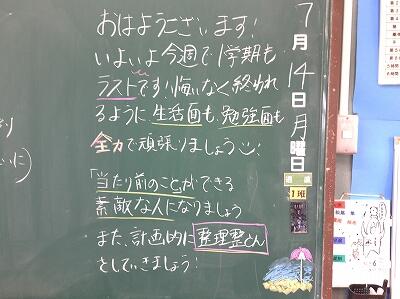 おはようございます!
いよいよ今週で1学期も
ラストです!!悔いなく終われ
るように生活面も、勉強面も
全力で頑張りましょう!
「当たり前のことができる
素敵な人になりましょう
また、計画的に整理整とん
をしていきましょう!
7月14日月曜日
1班